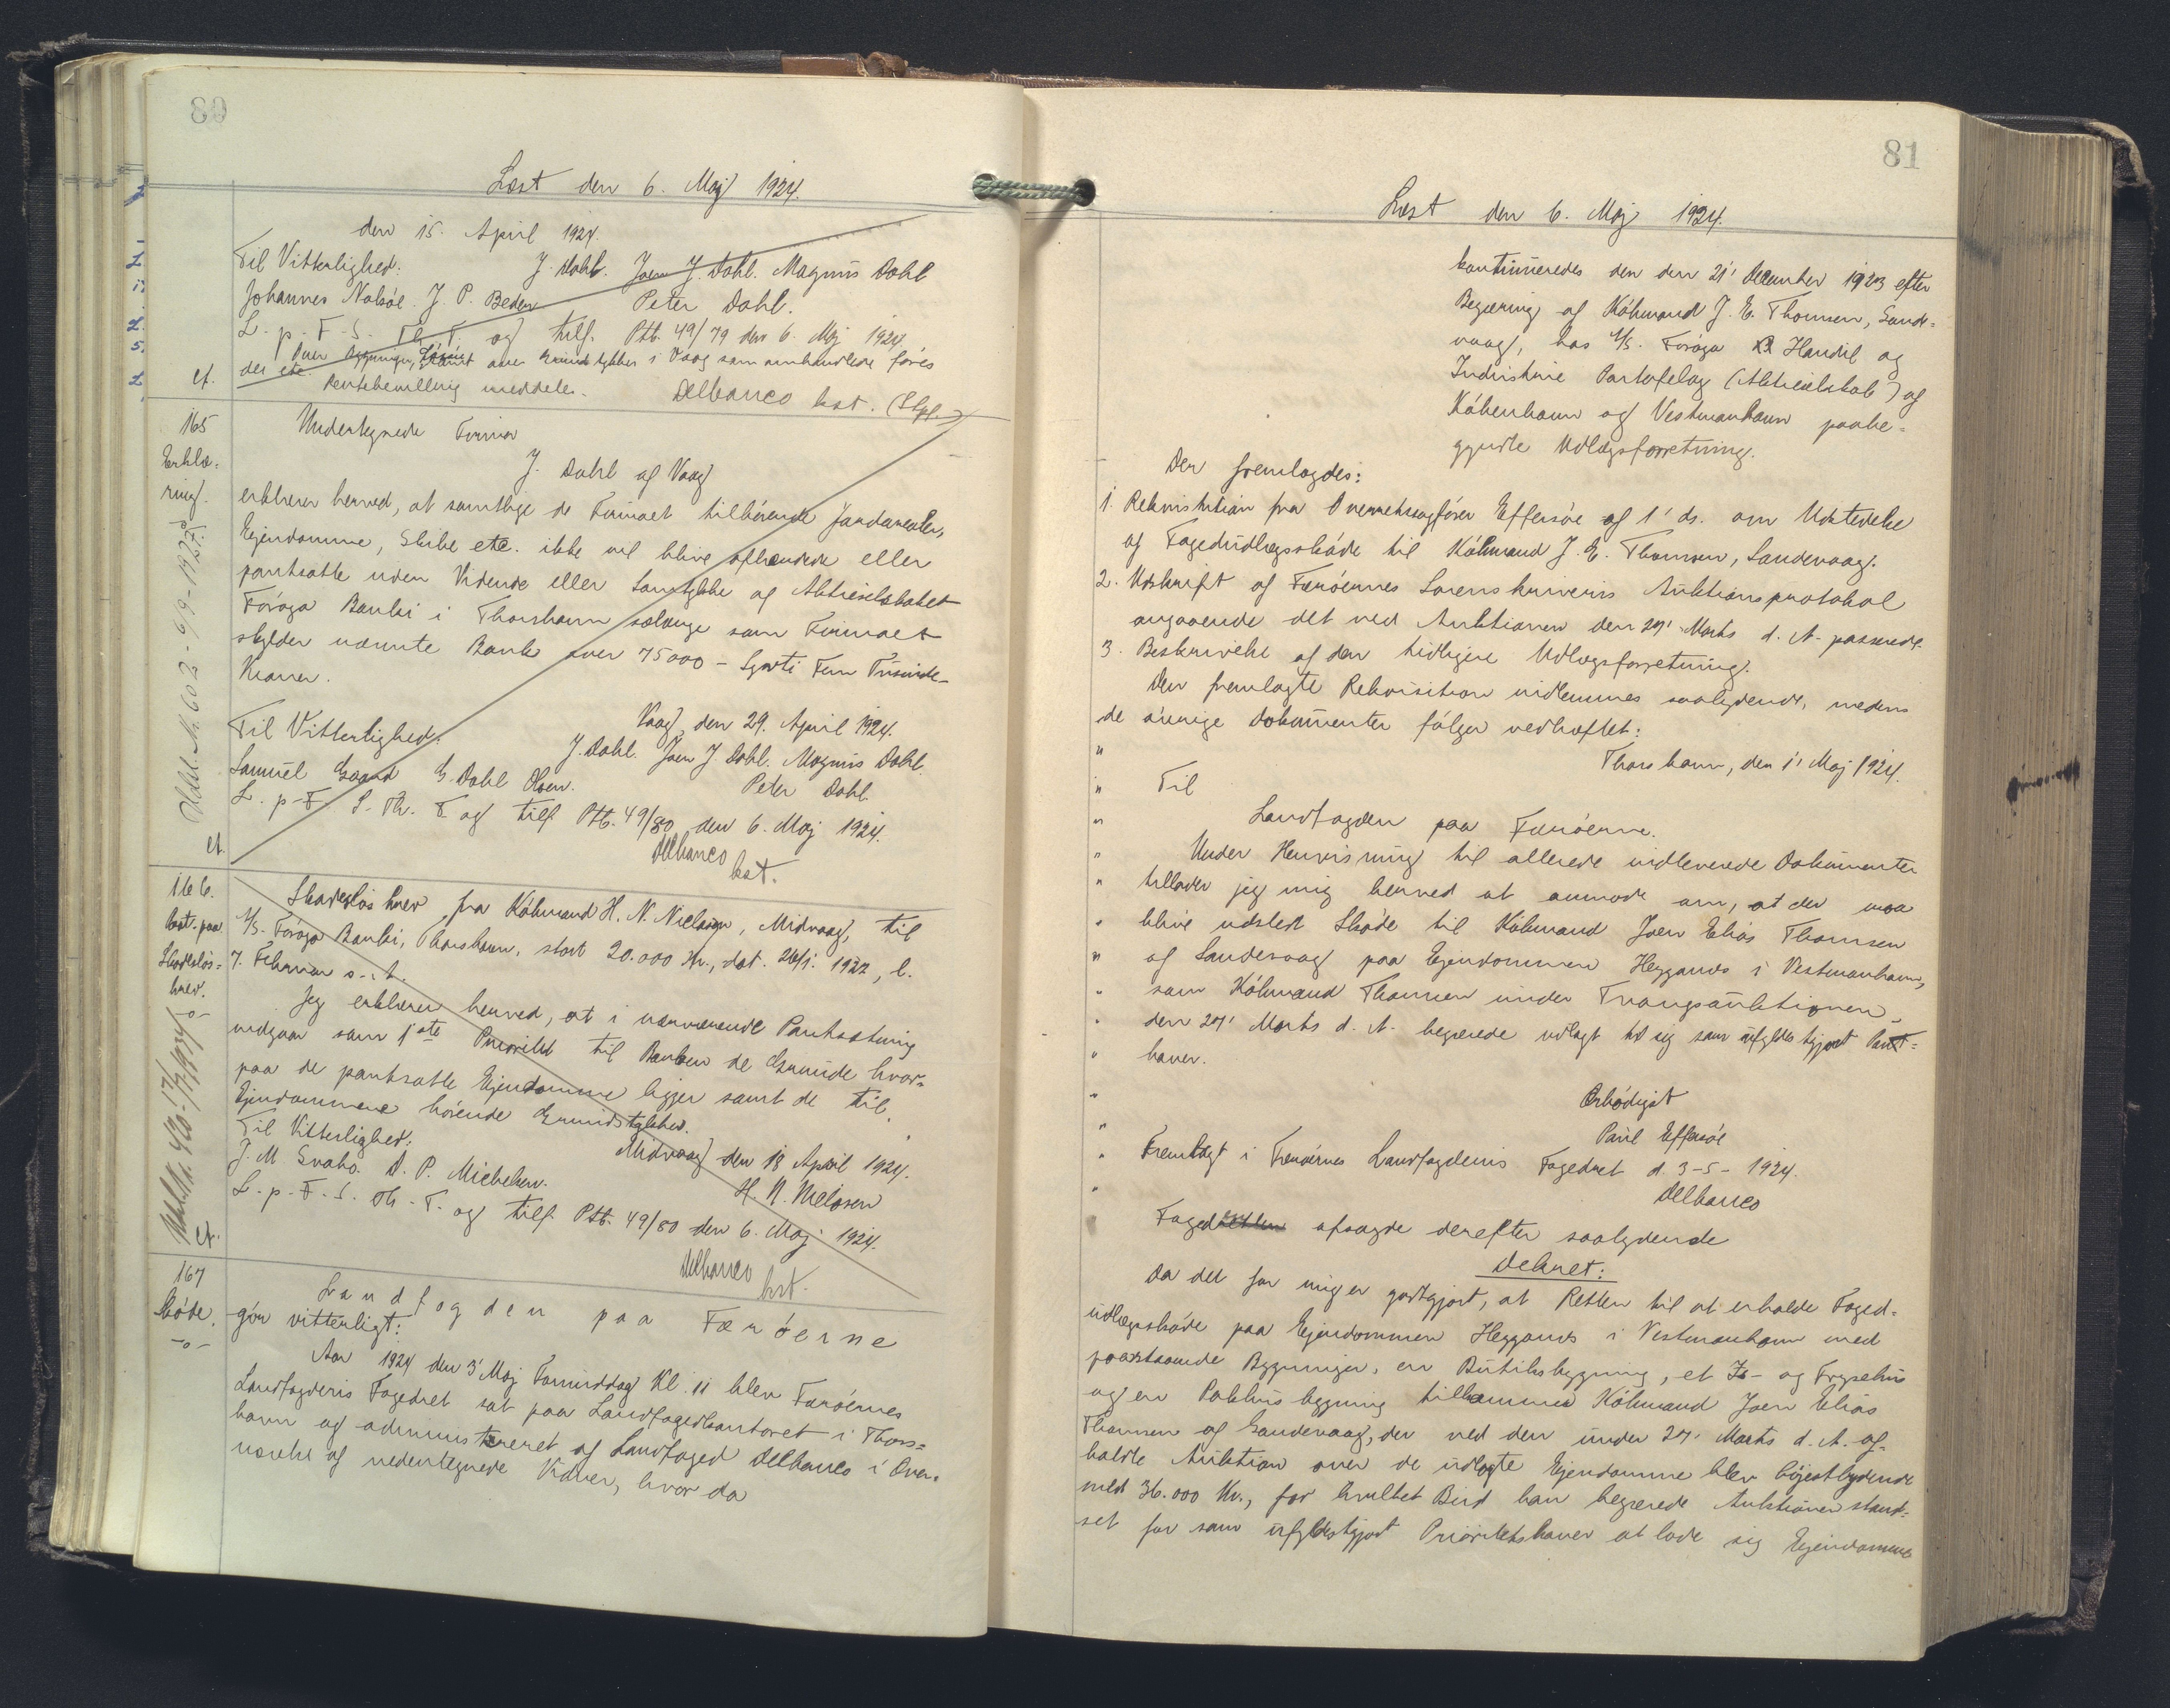 80
Læst den 6. Maj 1924.
den 15. April 1924.
Til Vitterlighed: J. Dahl. Joen J. Dahl. Magnus Dahl
Johannes Nolsøe. J. P. Beder Peter Dahl.
L. p. F. S. Th. F. og tilf. Ptb. 49/79 den 6. Maj 1924.
Rentebevilling meddeles. Delbanco kst.
ct.
165
Erklæ-
ring.
-o-
Undertegnede Firma
J. Dahl af Vaag
erklærer herved, at samtlige de Firmaet tilhørende Jordarealer,
Ejendomme, Skibe etc. ikke vil blive afhændede eller
pantsatte uden Vidende eller Samtykke af Aktieselskabet
Føroya Banki i Thorshavn sålænge som Firmaet
skylder nævnte Bank over 75000 - Syvti Fem Tusinde-
Kroner.
Vaag, den 29. April 1924.
Til Vitterlighed: J. Dahl. Joen J. Dahl. Magnus Dahl.
Samuel G. Dahl Olsen. Peter Dahl.
L. p. F. S. Th. F. og tilf. Ptb. 49/80 den 6. Maj 1924.
Delbanco
kst.
ct.
166.
paa
Skadesløs-
brev.
-o-
Skadesløsbrev fra Købmand H. N. Nielsen, Midvaag, til
A/S. Føroya Banki, Thorshavn, stort 20.000 Kr., dat. 26/1. 1922, l.
7. Februar s. A.
Jeg erklærer herved, at i nærværende Pantsætning
indgaar som 1ste Prioritet til Banken de Grunde hvor-
paa de pantsatte Ejendomme ligger samt de til
Ejendommene hørende Grundstykker.
Midvaag den 18 April 1924.
Til Vitterlighed:
J. M. Svabo. D. P. Michelsen. H. N. Nielsen
L. p. F. S. Th. F. og tilf. Ptb. 49/80 den 6. Maj 1924.
Delbanco
kst.
ct.
167
Skøde.
-o-
Landfogden paa Færøerne
gør vitterligt:
Aar 1924 den 3' Maj Formiddag Kl. 11 blev Færøernes
Landfogderis Fogedret sat paa Landfogedkontoret i Thors-
havn og administreret af Landfoged Delbanco i Over-
værelse af nedentegnede Vidner, hvor da
81
Læst den 6. Maj 1924.
kontinueredes den den 21' December 1923 efter
Begæring af Købmand J. E. Thomsen, Sande-
vaag, hos A/S. Føroya Handil og
Industrive Partafelag (Aktieselskab) af
København og Vestmanhavn paabe-
gyndte Udlægsforretning.
Der fremlagdes:
1. Rekvisition fra Overretssagfører Effersøe af 1' ds. om Udstedelse
af Fogedudlægsskøde til Købmand J. E. Thomsen, Sandevaag.
2. Udskrift af Færøernes Sorenskriveris Auktionsprotokol
angaaende det ved Auktionen den 27' Marts d. A. passerede.
3. Beskrivelse af den tidligere Udlægsforretning.
Den fremlagte Rekvisition indlemmes saalydende, medens
de øvrige Dokumenter følger vedhæftet:
" Thorshavn, den 1' Maj 1924.
" Til
" Landfogden paa Færøerne.
" Under Henvisning til allerede indleverede Dokumenter
" tillader jeg mig herved at anmode om, at der maa
" blive udstedt Skøde til Købmand Joen Elias Thomsen
" af Sandevaag paa Ejendommen Heygands i Vestmanhavn,
" som Købmand Thomsen under Tvangsauktionen
" den 27' Marts d. A. begærede udlagt til sig som ufyldestgjort Pant-
" haver.
" Ærbødigst
" Paul Effersøe
" Fremlagt i Færøernes Landfogderis Fogedret d. 3-5-1924.
" Delbanco
Fogeden afsagde derefter saalydende
Dekret:
Da det for mig er godtgjort, at Retten til at erholde Foged-
udlægsskøde paa Ejendommen Heygands i Vestmanhavn med
paastaaende Bygninger, en Butiksbygning, et Is- og Frysehus
og en Pakhusbygning tilkommer Købmand Joen Elias
Thomsen af Sandevaag, der ved den under 27' Marts d. A. af-
holdte Auktion over de udlagte Ejendomme blev højestbydende
med 36.000 Kr., for hvilket Bud han begærede Auktionen stand-
set for som ufyldestgjort Prioritetshaver at lade sig Ejendomme